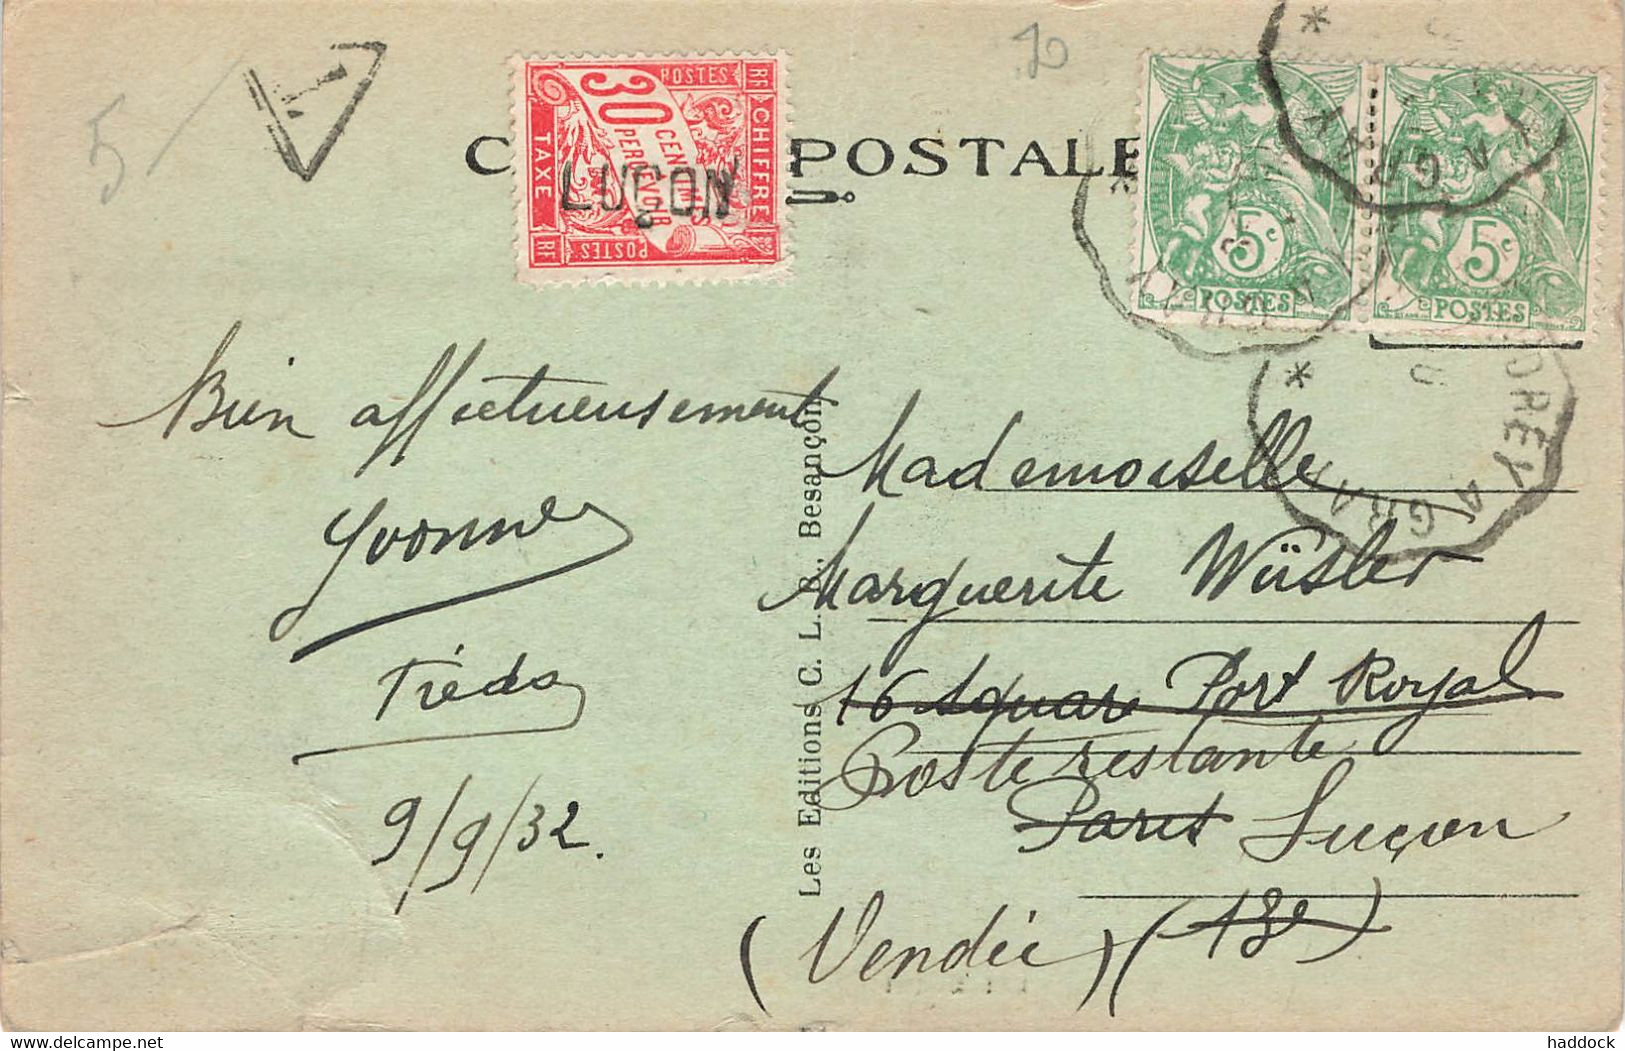 5
T
10
C
POSTALE
POSTES
RF
CHIFFRE
30
CENTIMES
PERCEVOIR
TAXE
RF
POSTES
LUÇON
5c
POSTES
5c
POSTES
OREY A GRAY
A GRAY
Bien affectueusement
Yvonne
9/9/32.
Les Editions C. L. B., Besançon
Mademoiselle
Marguerite Wüsler
16 Square Port Royal
Poste restante
Paris Luçon
(Vendée) (13e)
http://www.delcampe.net
haddock